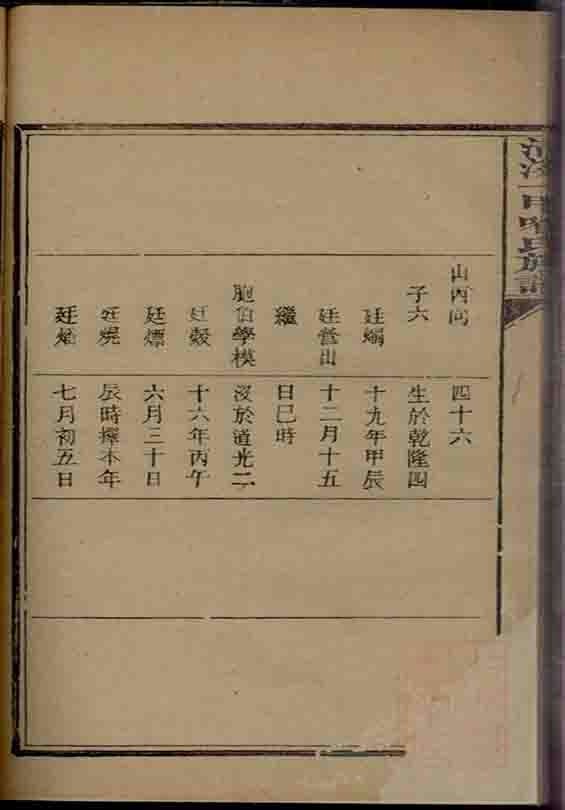 山丙向
子六
廷
廷營出
繼
胞伯學模
廷穀
廷燻
廷燒
廷
四十六
生於乾隆四
十九年甲辰
十二月十五
日巳時
沒於道光二
十六年丙午
六月三十日
辰時擇本年
七月初五日
氏族譜